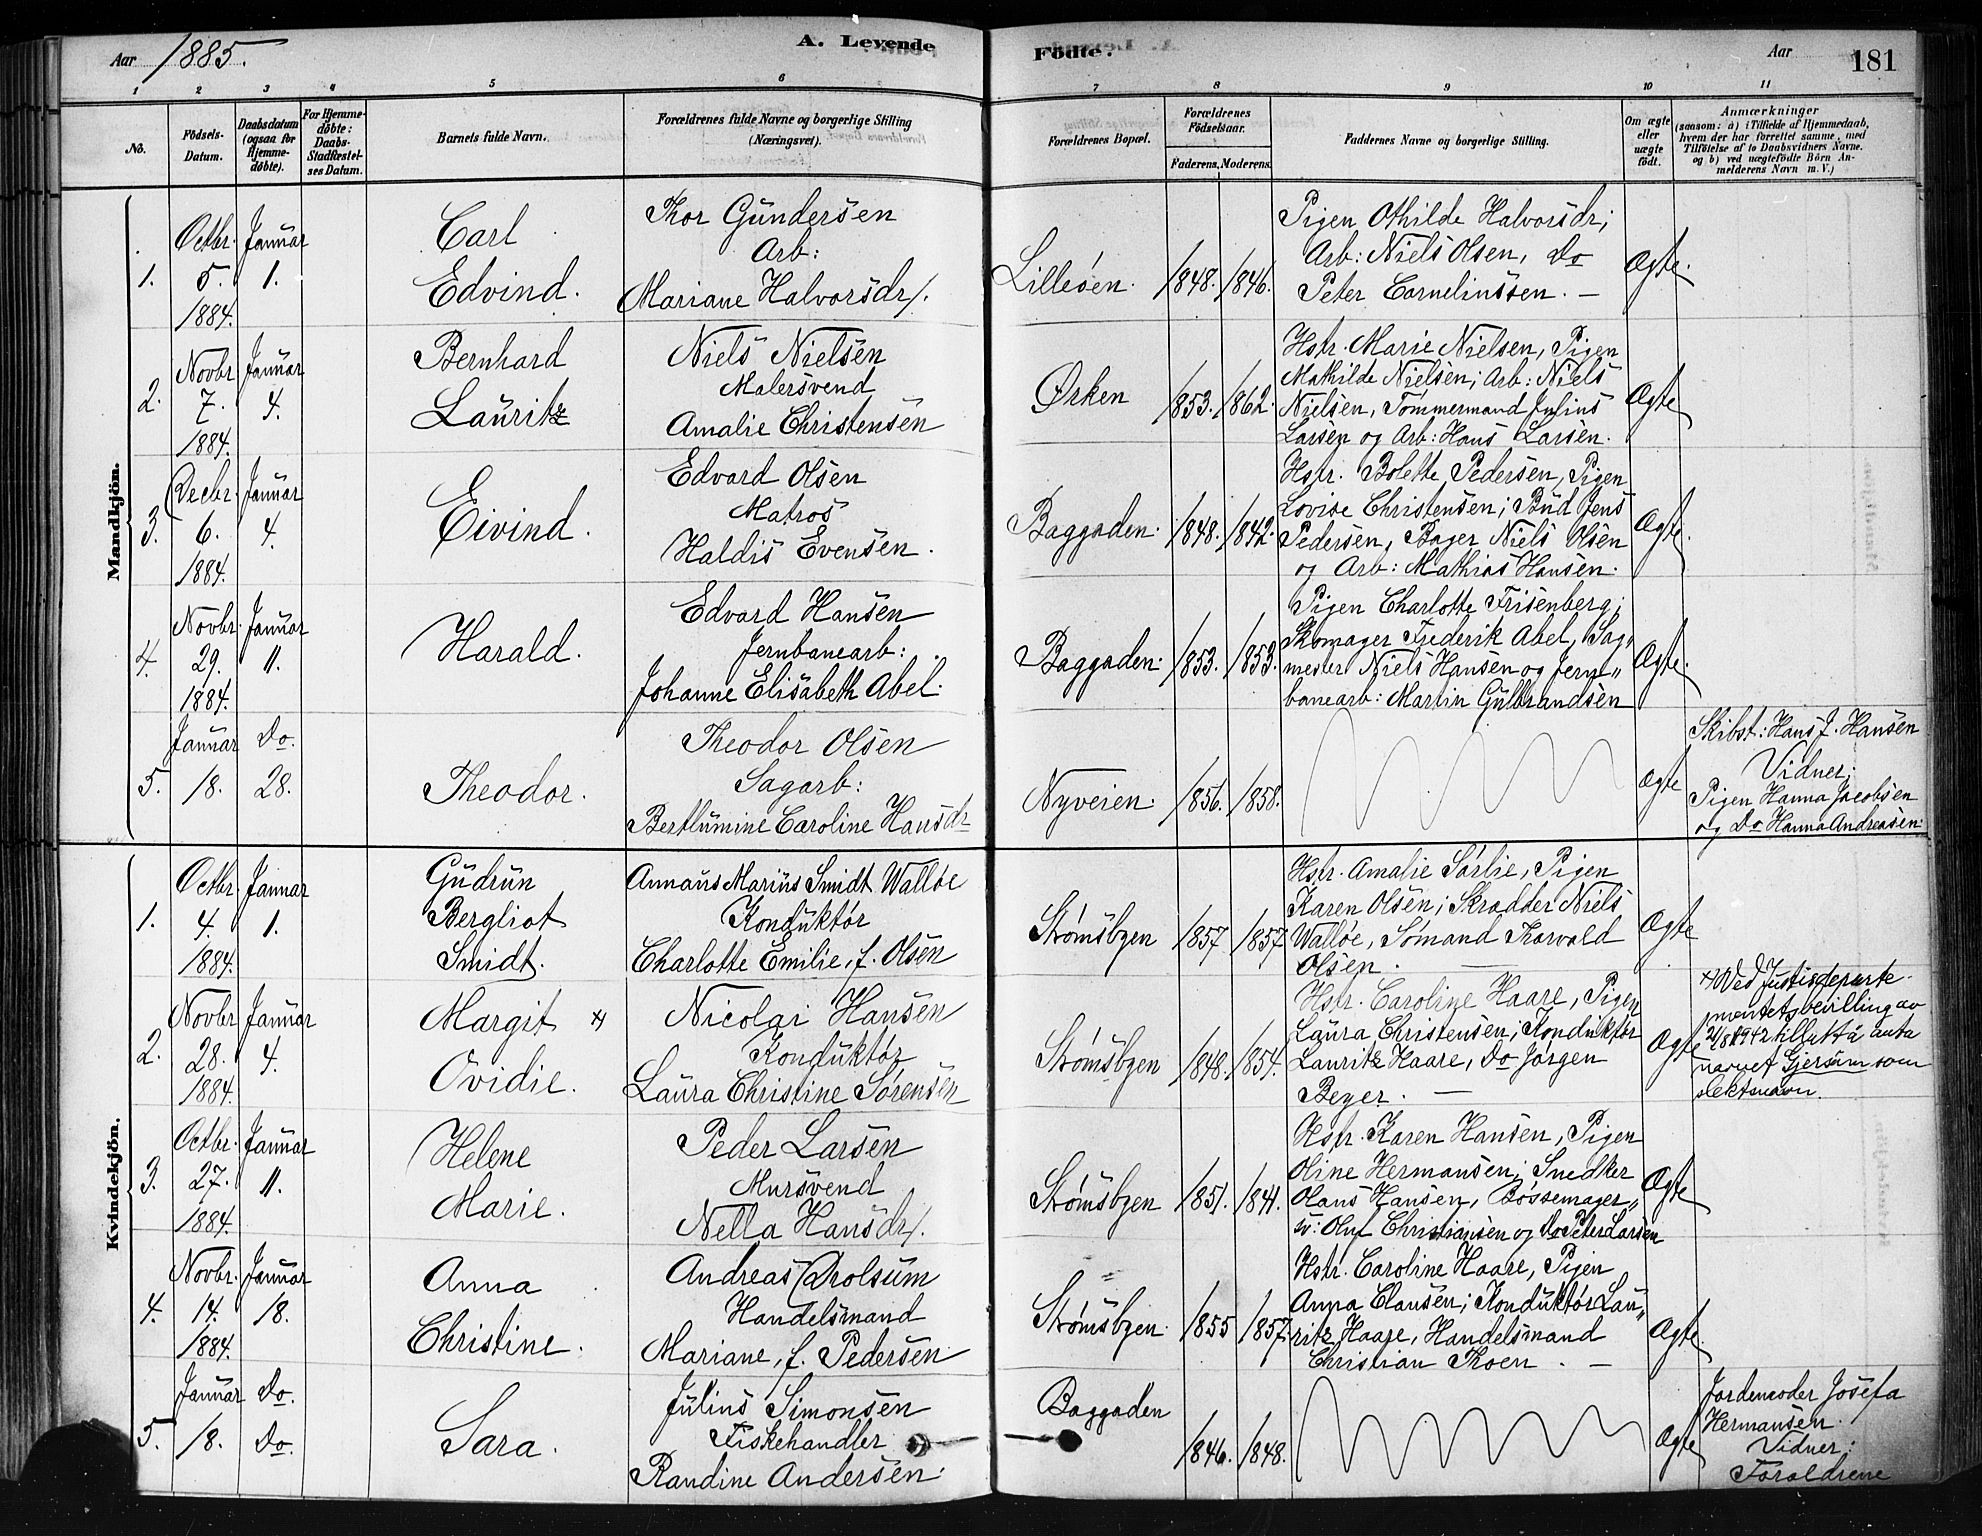 Aar 1885.
A. Levende Födte.
Aar 181
1 2 3 4 5 6 7 8 9 10 11
No.
Födsels-Datum.
Daabsdatum (ogsaa for Hjemme-döbte).
For Hjemme-döbte: Daabs-Stadfæstel-ses Datum.
Barnets fulde Navn.
Forældrenes fulde Navne og borgerlige Stilling (Næringsvei).
Forældrenes Bopæl.
Forældrenes Födselsaar.
Faderens, Moderens.
Faddernes Navne og borgerlige Stilling.
Om ægte eller uægte födt.
Anmærkninger
(saasom: a) i Tilfælde af Hjemmedaab,
hvem der har forrettet samme, med
Tilföielse af to Daabsvidners Navne.
og b) ved uægtefödte Börn An-
melderens Navn m. V.)
Mandkjön.
1. Octbr. 5. 1884. Januar 1.
Carl Edvind.
Thor Gundersen
Arb:
Mariane Halvorsdr/.
Lilleöen. 1848. 1846.
Pigen Othilde Halvorsdr;
Arb: Niels Olsen, Do
Peter Cornelinssen. —
Ægte.
2. Novbr 7. 1884. Januar 4.
Bernhard Lauritz
Niels Nielsen
Malersvend
Amalie Christensen
Ørken 1853. 1862.
Hstr. Marie Nielsen, Pigen
Mathilde Nielsen; Arb: Niels
Nielsen, Tömmermand Julius
Larsen og Arb: Hans Larsen.
Ægte
3. Decbr. 6. 1884. Januar 4.
Eivind.
Edvard Olsen
Matros
Haldis Evensen.
Baggaden. 1848. 1842.
Hstr. Bolette Pedersen, Pigen
Lovise Christensen; Bud Jens
Pedersen, Bager Niels Olsen
og Arb: Mathias Hansen.
Ægte.
4. Novbr. 29. 1884. Januar 11.
Harald.
Edvard Hansen
Jernbanearb:
Johanne Elisabeth Abel.
Baggaden. 1853. 1853.
Pigen Charlotte Frisenberg;
Skomager Frederik Abel, Sag„
mester Niels Hansen og Jern„
banearb: Martin Gulbrandsen
Ægte.
5. Januar 18. Do. 28.
Theodor.
Theodor Olsen
Sagarb:
Bertlumine Caroline Hansdr
Nyveien. 1856. 1858.
Ægte
Skibst: Hans J. Hansen
Vidner;
Pigen Hanna Jacobsen
og Do Hanna Andreasen.
Kvindekjön.
1. Octbr. 4. 1884. Januar 1.
Gudrun Bergliot Smidt.
Annaus Marius Smidt Walløe
Konduktør
Charlotte Emilie, f. Olsen
Strömsbyen 1857 1857
Hstr. Amalie Sörlie, Pigen
Karen Olsen; Skrædder Niels
Walløe, Sömand Thorvald
Olsen. —
Ægte
2. Novbr 28. 1884. Januar 4.
Margit x) Ovidie.
Nicolai Hansen
Konduktør
Laura Christine Sörensen
Strömsbyen 1848. 1854.
Hstr. Caroline Haare, Pigen
Laura Christensen; Konduktør
Lauritz Haare, Do Jörgen
Beyer. —
Ægte
x) Ved Justisdeparte-
mentets bevilling av
21/8 1942 tillatt å anta
navnet Gjersum som
slektsnavn.
3. Octbr. 27. 1884. Januar 11.
Helene Marie.
Peder Larsen
Mursvend
Nella Hansdr/.
Strömsbyen 1851. 1841.
Hstr. Karen Hansen, Pigen
Oline Hermansen; Snedker
Hans Hansen, Bössemager„
sv: Oluf Christiansen og Do Peter Larsen
Ægte
4. Novbr. 14. 1884. Januar 18.
Anna Christine.
Andreas Drolsum
Handelsmand
Mariane, f. Pedersen
Strömsbyen. 1855 1857
Hstr. Caroline Haare, Pigen
Anna Clausen; Konduktør Lau„
ritz Haare, Handelsmand
Christian Thoen. —
Ægte.
5. Januar 18. Do. Do.
Sara.
Julius Simonsen
Fiskehandler
Randine Andersen.
Baggaden 1846. 1848.
Ægte
Jordemoder Josefa
Hermansen.
Vidner:
Forældrene